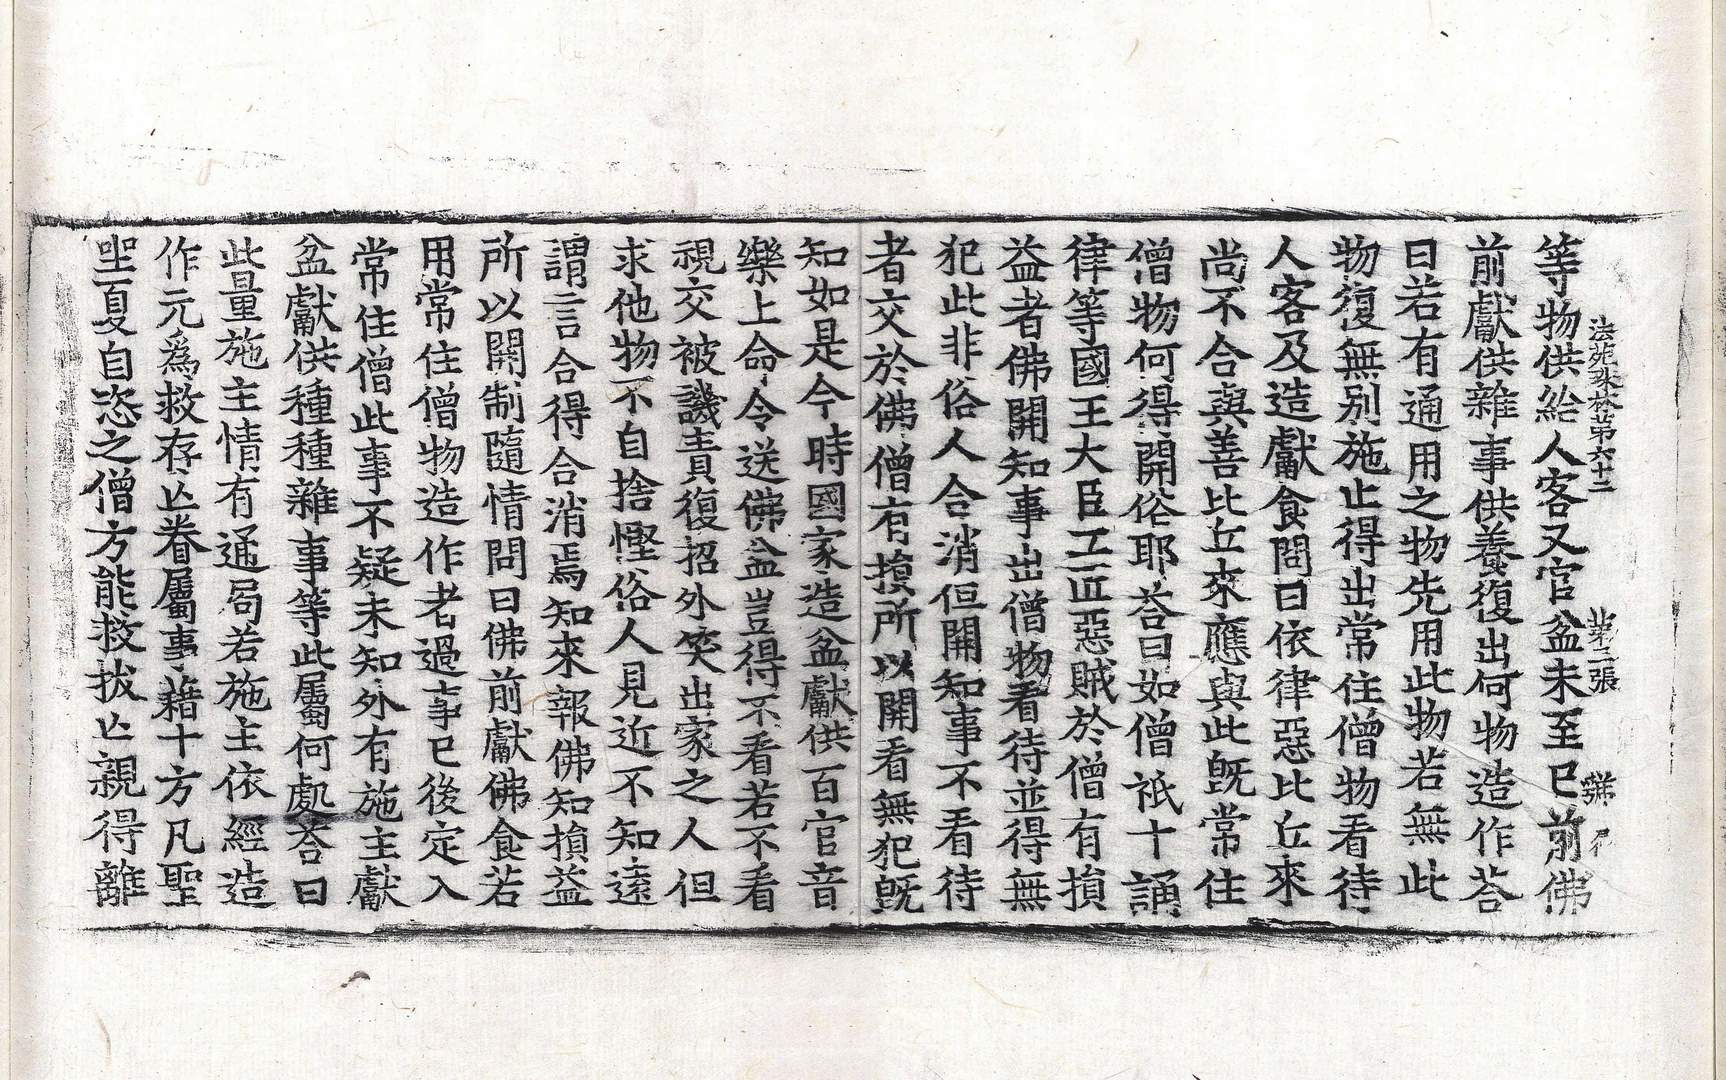 法苑珠林第六十二 第二張 弊
等物供給人客又官盆未至已前佛
前獻供雜事供養復出何物造作荅
曰若有通用之物先用此物若無此
物復無別施止得出常住僧物看待
人客及造獻食問曰依律惡比丘來
尚不合與善比丘來應與此旣常住
僧物何得開俗耶荅曰如僧祇十誦
律等國王大臣工匠惡賊於僧有損
益者佛開知事出僧物看待並得無
犯此非俗人合消但開知事不看待
者交於佛僧有損所以開看無犯旣
知如是今時國家造盆獻供百官音
樂上命令送佛盆豈得不看若不看
視交被譏責復招外笑出家之人但
求他物不自捨慳俗人見近不知遠
謂言合得合消焉知來報佛知損益
所以開制隨情問曰佛前獻佛食若
用常住僧物造作者過事已後定入
常住僧此事不疑未知外有施主獻
盆獻供種種雜事等此屬何處荅曰
此量施主情有通局若施主依經造
作元爲救存亡眷屬事藉十方凡聖
坐夏自恣之僧方能救拔亡親得離